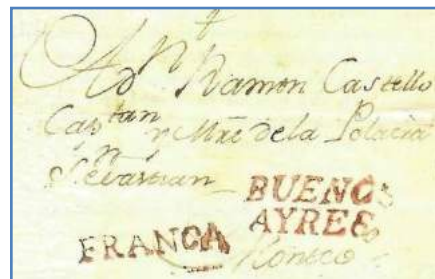 A Dn Ramon Castello
Captan y Mtre de la Polacra
Sn Sevastian
BUENOS
AYRES
FRANCA